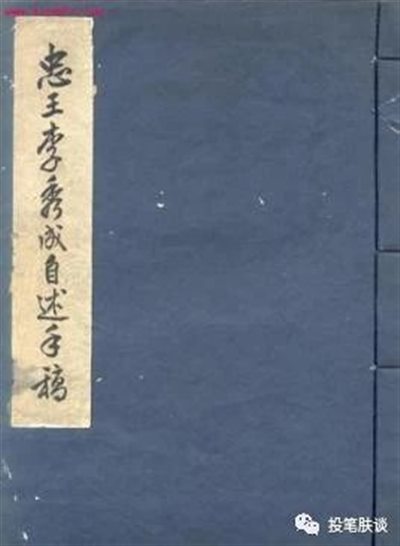 忠王李秀成自述手稿
投笔肤谈